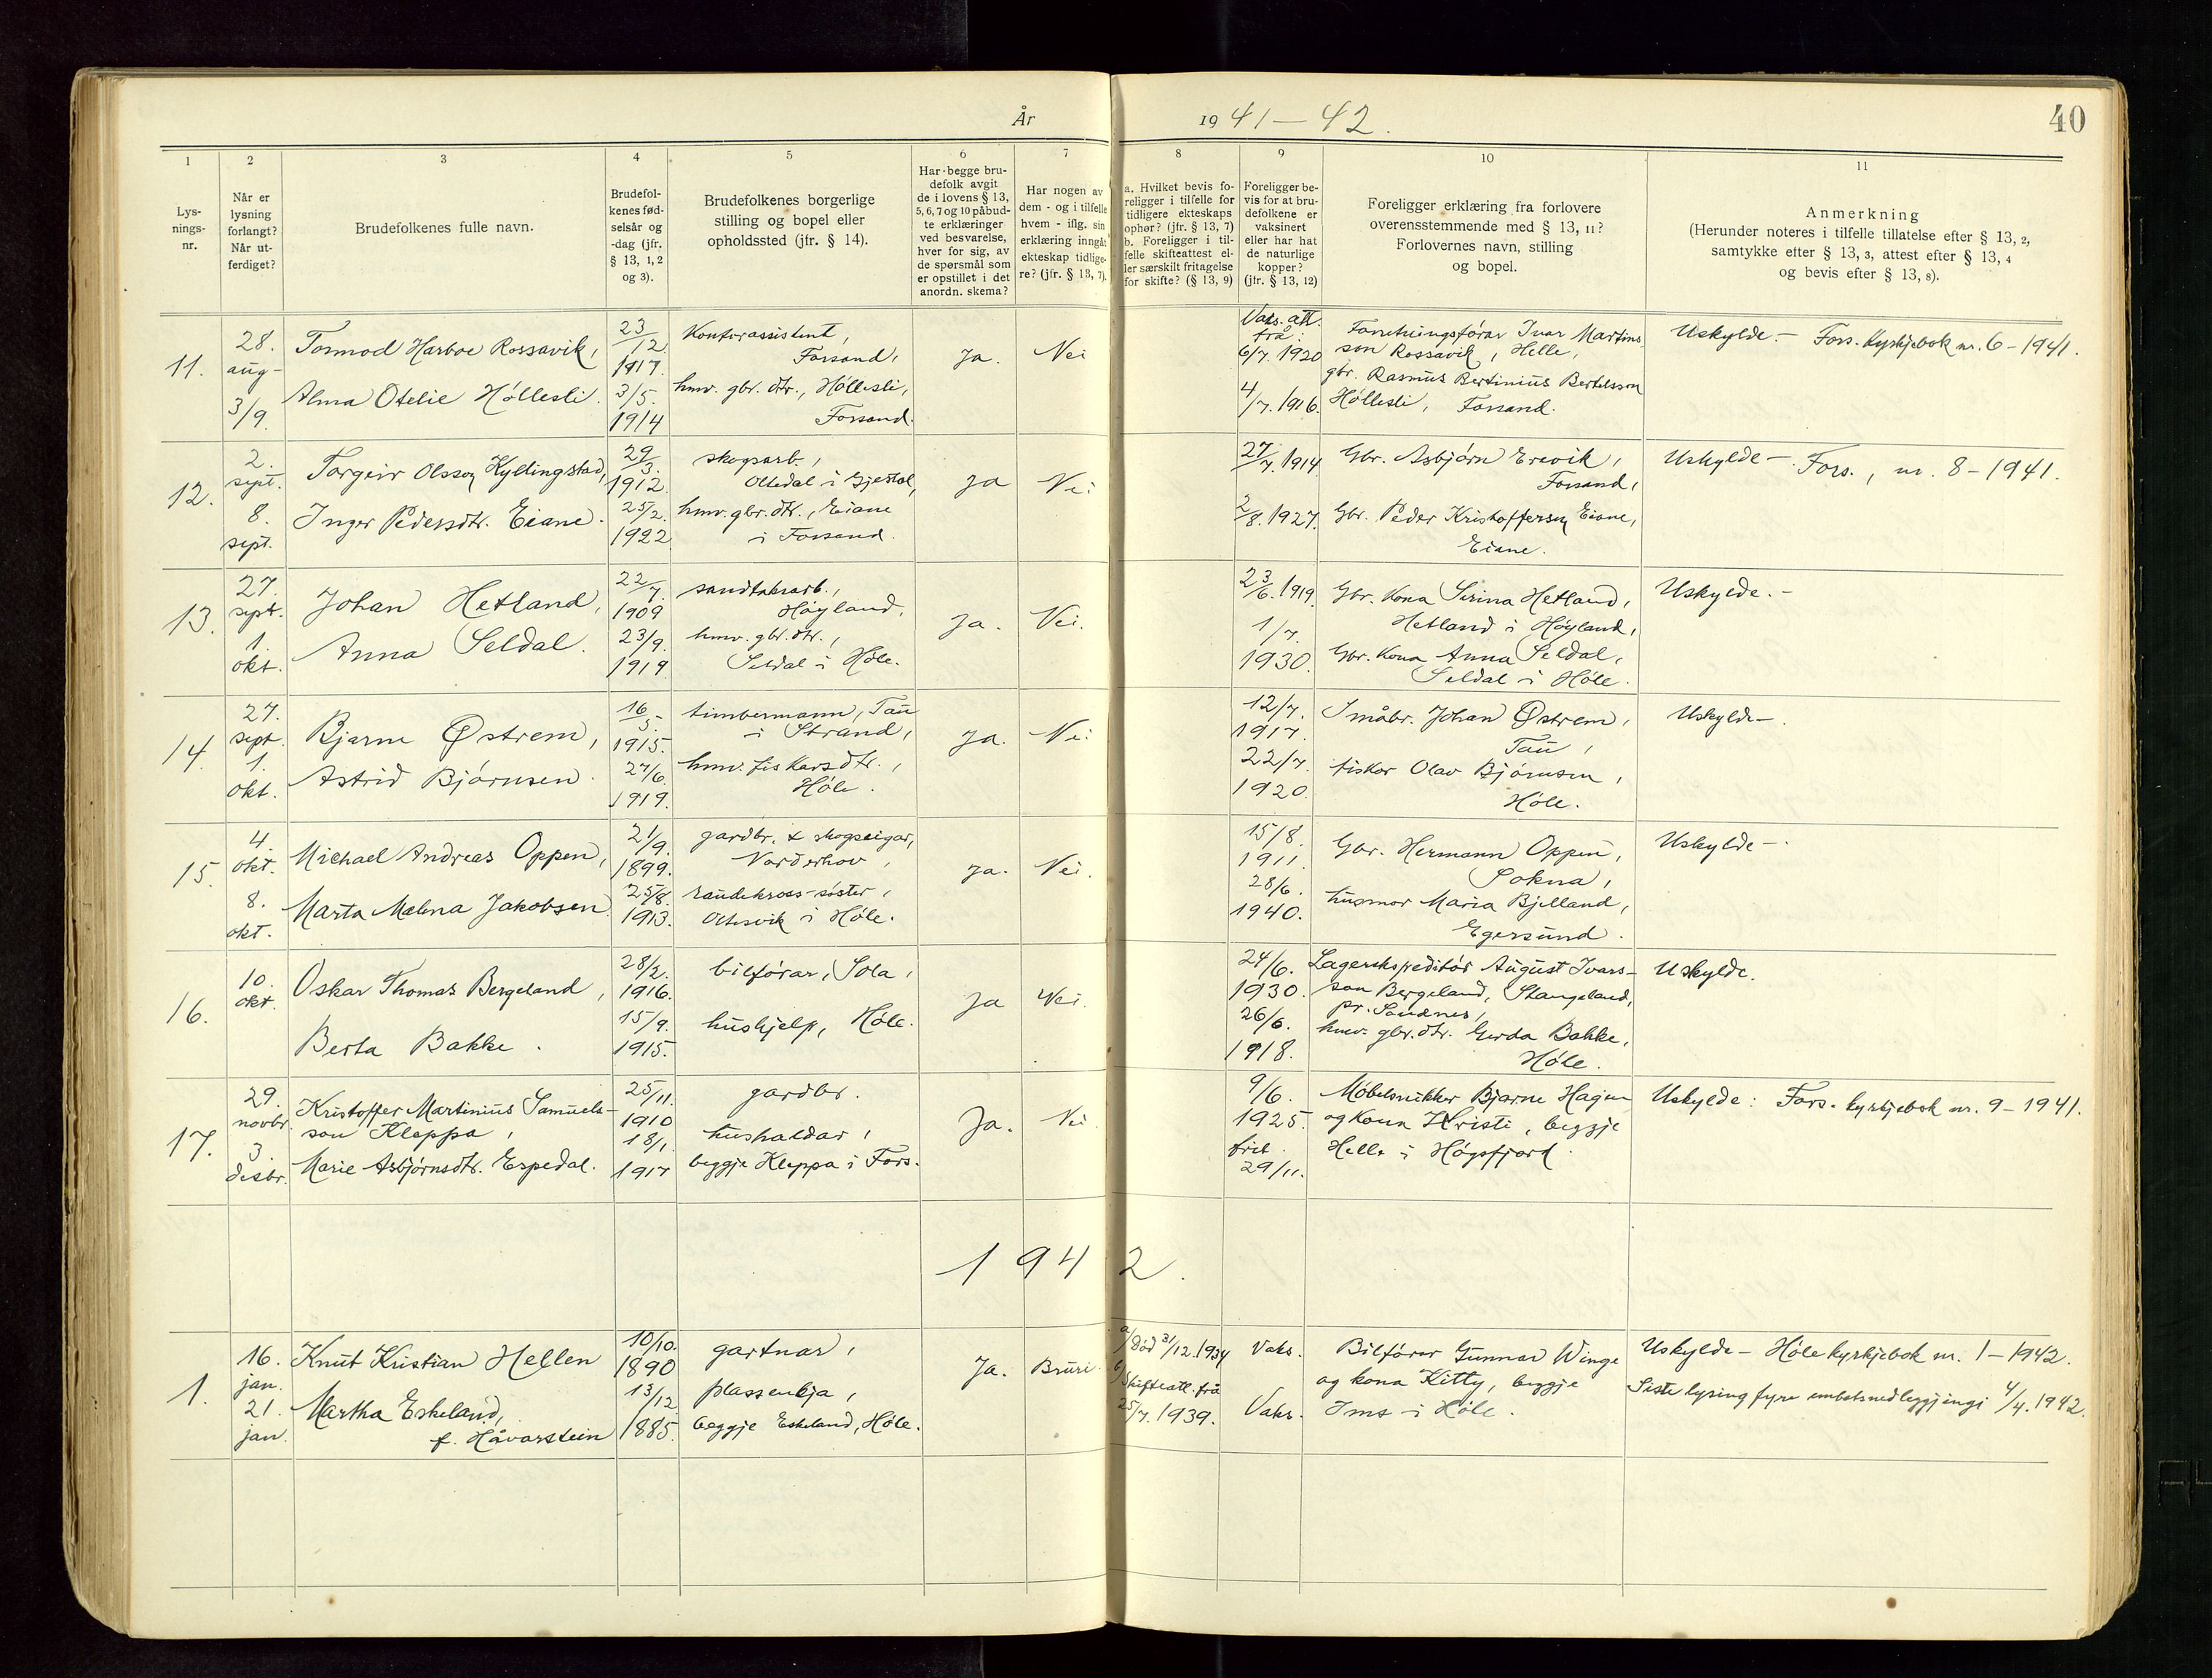 År 1941–42.
40
1
2
3
4
5
6
7
8
9
10
11
Lys-
nings-
nr.
Når er
lysning
forlangt?
Når ut-
ferdiget?
Brudefolkenes fulle navn.
Brudefol-
kenes fød-
selsår og
-dag (jfr.
§ 13, 1, 2
og 3).
Brudefolkenes borgerlige
stilling og bopel eller
opholdssted (jfr. § 14).
Har begge bru-
defolk avgit
de i lovens § 13,
5, 6, 7 og 10 påbud-
te erklæringer
ved besvarelse,
hver for sig, av
de spørsmål som
er opstillet i det
anordn. skema?
Har nogen av
dem - og i tilfelle
hvem - iflg. sin
erklæring inngåt
ekteskap tidlige-
re? (jfr. § 13, 7).
a. Hvilket bevis fo-
religger i tilfelle for
tidligere ekteskaps
ophør? (jfr. § 13, 7)
b. Foreligger i til-
felle skifteattest el-
ler særskilt fritagelse
for skifte? (§ 13, 9)
Foreligger be-
vis for at bru-
defolkene er
vaksinert
eller har hat
de naturlige
kopper?
(jfr. § 13, 12)
Foreligger erklæring fra forlovere
overensstemmende med § 13, 11?
Forlovernes navn, stilling
og bopel.
Anmerkning
(Herunder noteres i tilfelle tillatelse efter § 13, 2,
samtykke efter § 13, 3, attest efter § 13, 4
og bevis efter § 13, 8).
11.
28.
aug-
3/9.
Tormod Harboe Rossavik,
Alma Otelie Höllesli.
23/12.
1917.
3/5.
1914
Kontorassistent,
Forsand,
hmv. gbr. dtr., Höllesli,
Forsand.
Ja.
Nei
Vaks. att.
frå
6/7. 1920
4/7. 1916.
Forretningsförar Ivar Martins-
son Rossavik, Helle,
gbr. Rasmus Bertinius Bertelsson
Höllesli, Forsand.
Uskylde.- Fors. kyrkjebok nr. 6-1941.
12.
2.
sept.
8.
sept.
Torgeir Olsson Kyllingstad,
Inger Pedersdtr. Eiane.
29/3.
1912.
25/2.
1922
skogsarb.,
Oltedal i Gjestal,
hmv. gbr. dtr., Eiane
i Forsand.
Ja
Nei
27/7. 1914
2/8. 1927.
Gbr. Asbjörn Erevik,
Forsand,
Gbr. Peder Kristoffersen Eiane,
Eiane.
Uskylde- Fors., nr. 8-1941.
13.
27.
sept.
1.
okt.
Johan Hetland,
Anna Seldal.
22/7.
1909
23/9.
1919
sandtakarb.,
Höyland,
hmv. gbr. dtr.,
Seldal i Höle.
Ja.
Nei.
23/6. 1919.
1/7.
1930.
Gbr. kona Serina Hetland,
Hetland i Höyland,
Gbr. kona Anna Seldal,
Seldal i Höle.
Uskylde.-
14.
27.
sept.
1.
okt.
Bjarne Østrem,
Astrid Björnsen.
16/5.
1915.
27/6.
1919.
timbermann, Tau
i Strand,
hmv. fiskarsdtr.,
Höle.
Ja.
Nei
12/7.
1917.
22/7.
1920.
Småbr. Johan Østrem,
Tau,
fiskar Olav Björnsen,
Höle.
Uskylde-.
15.
4.
okt.
8.
okt.
Michael Andreas Oppen,
Marta Malena Jakobsen
21/9.
1899.
25/8.
1913.
gardbr. & skogseigar,
Norderhov,
raudekross-söster,
Oltesvik i Höle.
Ja.
Nei.
15/8.
1911.
28/6.
1940.
Gbr. Hermann Oppen,
Sokna,
husmor Maria Bjelland,
Egersund.
Uskylde-.
16.
10.
okt.
Oskar Thomas Bergeland,
Berta Bakke.
28/2.
1916.
15/9.
1915.
bilförar, Sola,
hushjelp, Höle.
Ja
Nei.
24/6.
1930.
26/6.
1918.
Lagerekspeditör August Ivars-
son Bergeland, Stangeland,
pr. Sandnes,
hmv. gbr. dtr. Gerda Bakke,
Höle.
Uskylde.
17.
29.
novbr.
3.
desbr.
Kristoffer Martinius Samuels-
son Kleppa,
Marie Asbjörnsdtr. Espedal.
25/11.
1910
18/1.
1917
gardbr.
hushaldar,
beggje Kleppa i Fors.
Ja.
Nei.
9/6.
1925.
frit.
29/11.
Möbelsnikker Bjarne Hagen
og kona Kristi, beggje
Helle i Högsfjord.
Uskylde: Fors. kyrkjebok nr. 9-1941.
1942.
1.
16.
jan.
21.
jan.
Knut Kristian Hellen
Martha Eskeland,
f. Håvarstein
10/10.
1890
13/12
1885.
gartnar,
plassenkja,
beggje Eskeland, Höle.
Ja.
Bruri
a/ Död 31/12. 1934
b/ Skifteatt. frå
25/7. 1939.
Vaks.
Vaks.
Bilförar Gunnar Winge
og kona Kitty, beggje
Ims i Höle.
Uskylde- Höle kyrkjebok nr. 1-1942.
Siste lysing fyre embetsnedleggjingi 4/4. 1942.